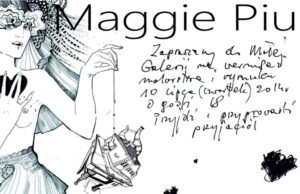 Maggie Piu
Zapraszamy do Małej
Galerii na wernisaż
malarstwa i rysunku
10 lipca (czwartek) 2014
o godz. 18
przyjdź i przyprowadź
przyjaciół